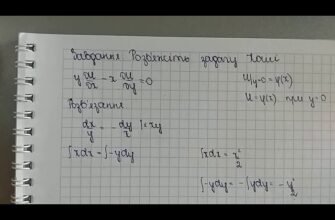 Завдання Розв'яжіть задачу Коші
y ∂u/∂x - x ∂u/∂y = 0
u|y=0 = φ(x)
u = φ(x) при y=0
Розв'язання
dx/y = - dy/x | · xy
∫xdx = ∫-ydy
∫xdx = x²/2
∫-ydy = -∫ydy = - y²/2